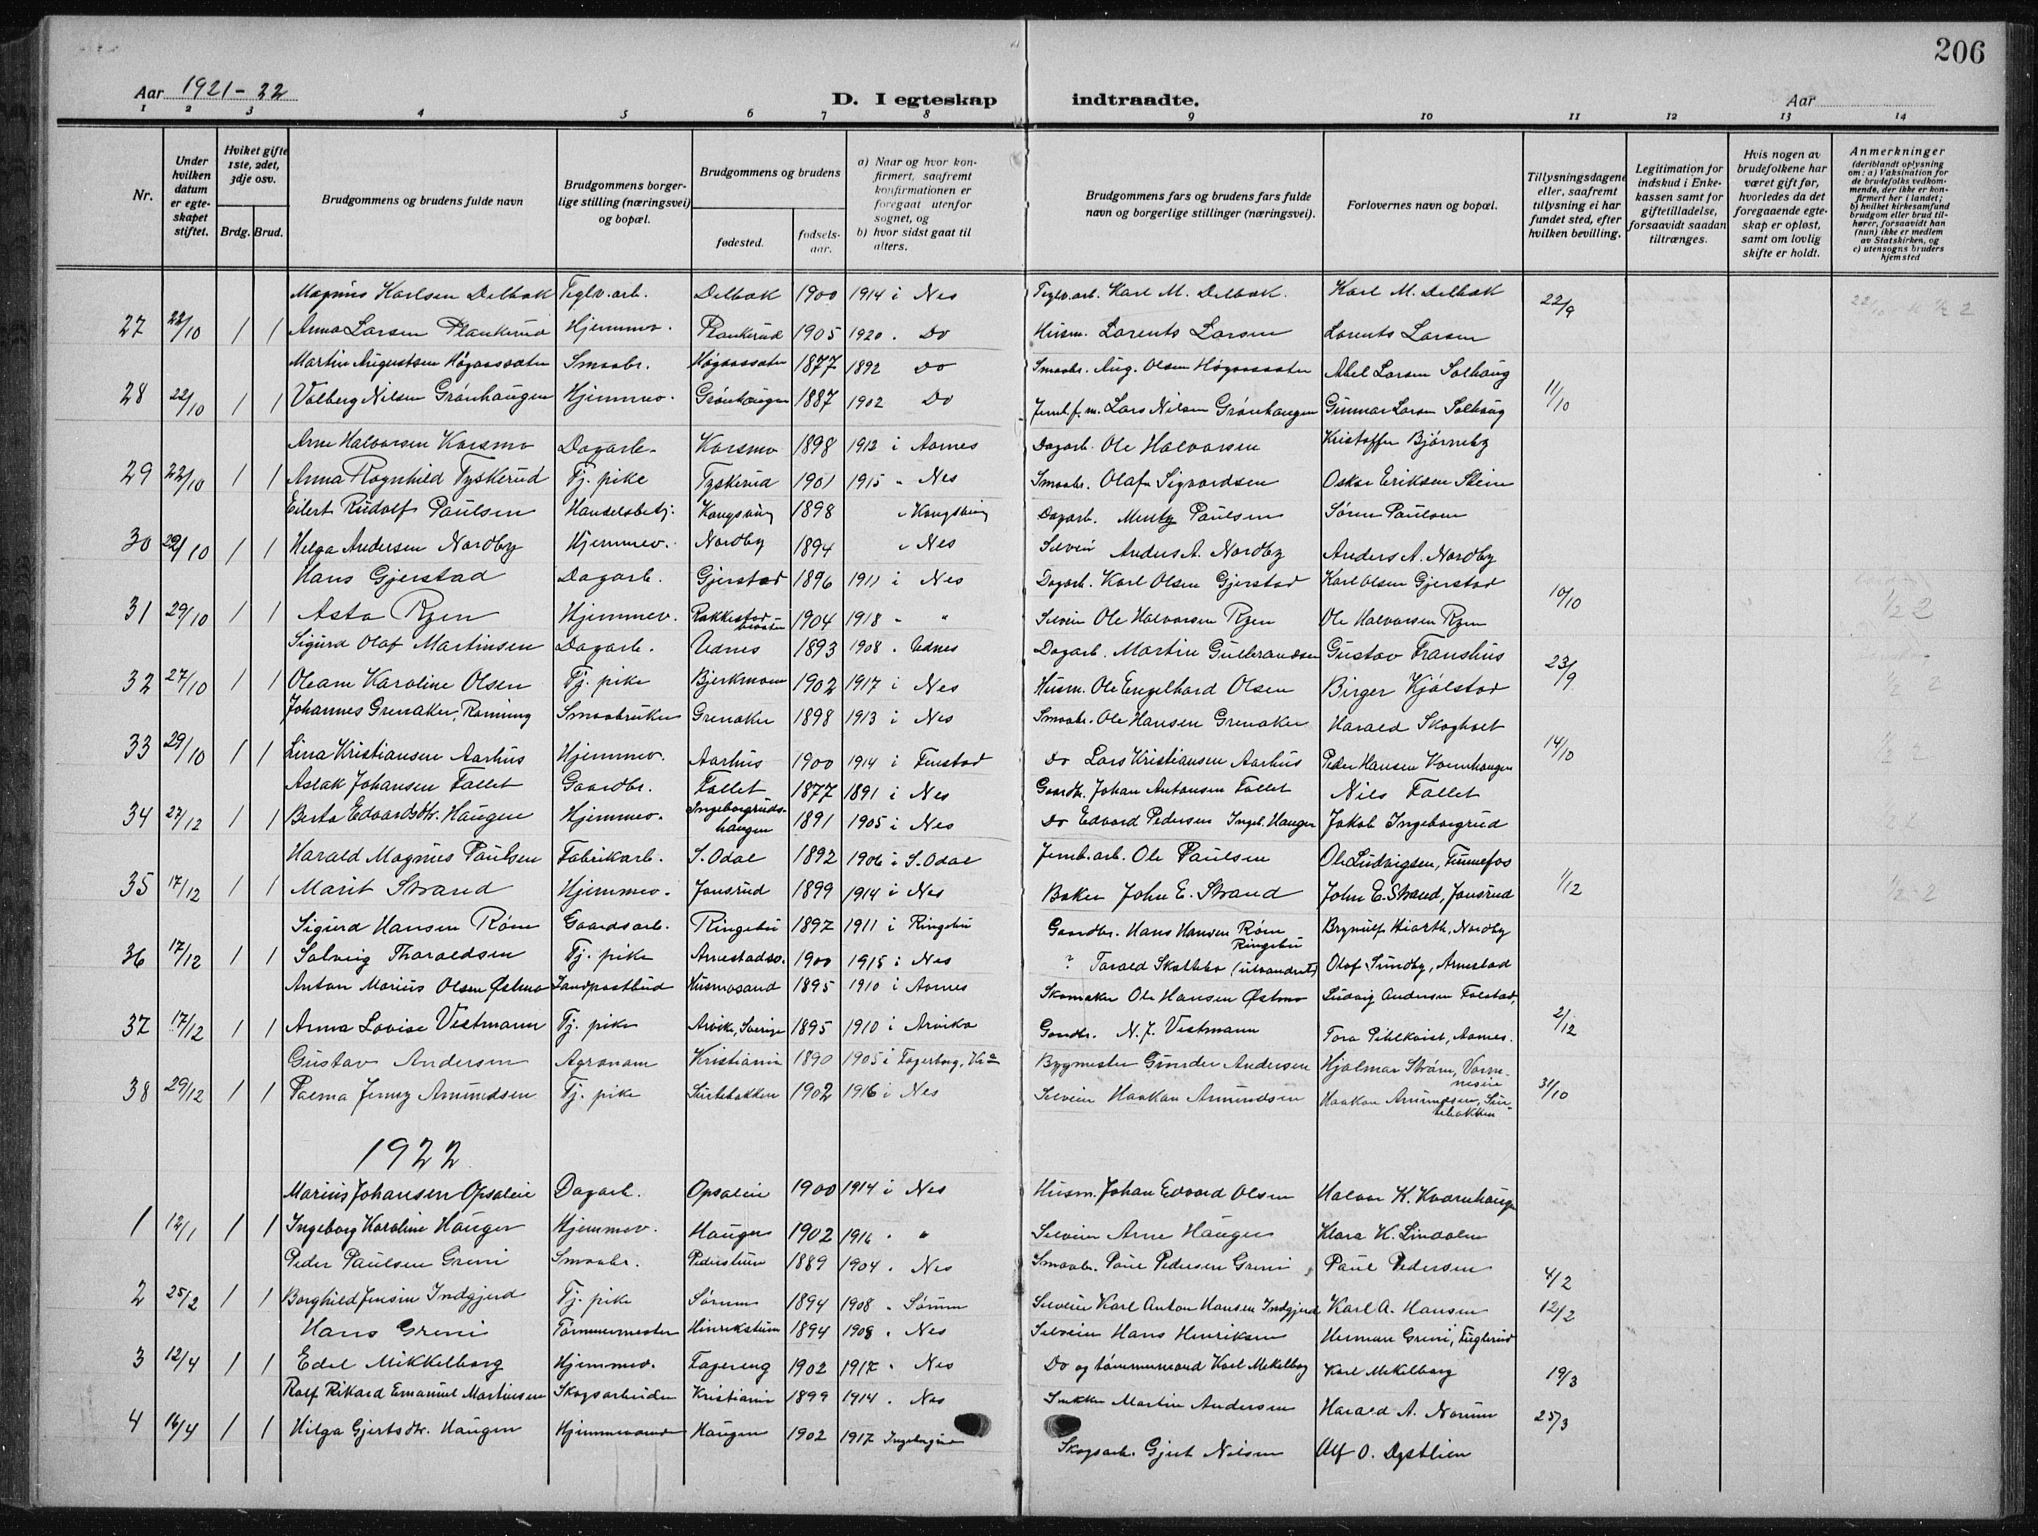 206
Aar 1921-22
D. I egteskap indtraadte.
Aar
1 2 3 4 5 6 7 8 9 10 11 12 13 14
Nr.
Under hvilken datum er egteskapet stiftet.
Hvilket gifte 1ste, 2det, 3dje osv.
Brdg. Brud.
Brudgommens og brudens fulde navn
Brudgommens borgerlige stilling (næringsvei) og bopæl.
Brudgommens og brudens
fødested.
fødselsaar.
a) Naar og hvor konfirmert, saafremt konfirmationen er foregaat utenfor sognet, og
b) hvor sidst gaat til alters.
Brudgommens fars og brudens fars fulde navn og borgerlige stillinger (næringsvei).
Forlovernes navn og bopæl.
Tillysningsdagene eller, saafremt tillysning ei har fundet sted, efter hvilken bevilling.
Legitimation for indskud i Enkekassen samt for giftetilladelse, forsaavidt saadan tiltrænges.
Hvis nogen av brudefolkene har været gift før, hvorledes da det foregaaende egteskap er opløst, samt om lovlig skifte er holdt.
Anmerkninger (deriblandt oplysning om: a) Vaksination for de brudefolks vedkommende, der ikke er konfirmert her i landet; b) hvilket kirkesamfund brudgom eller brud tilhører, forsaavidt han (hun) ikke er medlem av Statskirken, og c) utensogns bruders hjemsted
Magnus Karlsen Delbak Teglv.arb. Delbak 1900 1914 i Nes Teglv.arb. Karl M. Delbak. Karl M. Delbak 22/9
27 22/10 1 1 Anna Larsen Plankerud Hjemmev. Plankerud 1905 1920 . Do Husm. Lorents Larsen Lorents Larsen
Martin Augustsen Høgaassæter Smaabr. Høgaassæter 1877 1892 Do Smaabr. Aug. Olsen Høgaassæter Abel Larsen Solhaug
28 22/10 1 1 Valberg Nilsen Grønhaugen Hjemmev. Grønhaugen 1887 1902 Do Jernb.f.m. Lars Nilsen Grønhaugen Gunnar Larsen Solhaug 11/10
Arne Halvorsen Korsmo Dagarb. Korsmo 1898 1912 i Aarnes Dagarb. Ole Halvorsen Kristoffer Bjørneby
29 22/10 1 1 Anna Ragnhild Tyskerud Tj. pike Tyskerud 1901 1915 " Nes Smaabr. Olaf Sigvardsen Oskar Eriksen Stein
Eilert Rudolf Paulsen Handelsbetj. Kongsving 1898 " Kongsving Dagarb. Mentz Paulsen Søren Paulsen
30 29/10 1 1 Helga Andersen Nordby Hjemmev. Nordby 1894 " Nes Selveier Anders A. Nordby Anders A. Nordby
Hans Gjerstad Dagarb. Gjerstad 1896 1911 i Nes Dagarb. Karl Olsen Gjerstad Karl Olsen Gjerstad
31 29/10 1 1 Asta Ryen Hjemmev. Rakkestad 1904 1918 " " Selveier Ole Halvorsen Ryen Ole Halvorsen Ryen 10/10
Sigurd Olaf Martinsen Dagarb. Udnes 1893 1908 . Udnes Dagarb. Martin Gulbrandsen Gustav Franshus
32 27/10 1 1 Oleane Karoline Olsen Tj. pike Bjerkmoen 1902 1917 i Nes Husm. Ole Engelhard Olsen Birger Kjølstad 23/9
Johannes Grenaker, Rønning Smaabruker Grenaker 1898 1913 i Nes Smaabr. Ole Hansen Grenaker Harald Skogholt
33 29/10 1 1 Lina Kristiansen Aarhus Hjemmev. Aarhus 1900 1914 i Fenstad Do Lars Kristiansen Aarhus Peder Hansen Kvernhaugen 14/10
Aslak Johansen Fallet Gaardbr. Fallet 1877 1891 i Nes Gaardbr. Johan Antonsen Fallet Nils Fallet
34 27/12 1 1 Berta Edvardsdtr. Haugen Hjemmev. Ingeborgrudshaugen 1891 1905 i Nes Do Edvard Pedersen Ingeb. Haugen Jakob Ingeborgrud
Harald Magnus Paulsen Fabrikarb. S. Odal 1892 1906 i S. Odal Jernb.arb. Ole Paulsen Ole Ludvigsen, Funnefos
35 17/12 1 1 Marit Strand Hjemmev. Jonsrud 1899 1914 i Nes Baker John E. Strand John E. Strand, Jonsrud 1/12
Sigurd Hansen Røm Gaardsarb. Ringebu 1897 1911 i Ringebu Gaardbr. Hans Hansen Røm Ringebu Brynulf Hiorth, Nordby
36 17/12 1 1 Solveig Tharaldsen Tj. pike Arnestadsv. 1900 1915 i Nes ? Tarald Skallebo (utvandret) Olaf Sundby, Arnestad
Anton Marius Olsen Østmo Landpostbud Husmosand 1895 1910 i Aarnes Skomaker Ole Hansen Østmo Ludvig Andersen Folstad,
37 17/12 1 1 Anna Lovise Vestmann Tj. pike Arvika, Sverige 1895 1910 i Arvika Gaardbr. N. J. Vestmann Tora Pihlkvist, Aarnes. 2/12
Gustav Andersen Agronom Kristiania 1890 1905 i Fagerborg, Kra Bygmester Gunder Andersen Hjalmar Strøm, Vormnesin
38 29/12 1 1 Palma Jenny Amundsen Tj. pike Suttebakken 1902 1916 i Nes Selveier Haakon Amundsen Haakon Amundsen, 31/10
1922
Marius Johansen Opsalein Dagarb. Opsalein 1900 1914 i Nes Husm. Johan Edvard Olsen Halvor K. Kvernhaugen
1 12/1 1 1 Ingeborg Karoline Hauger Hjemmev. Hauger 1902 1916 . " Selveier Arne Hauger Klara K. Lindalen
Peder Paulsen Greni Smaabr. Pederstuen 1889 1904 . Nes Smaabr. Paul Pedersen Greni Paul Pedersen 4/2
2 25/2 1 1 Borghild Jensine Indgjerd Tj. pike Sørum 1894 1908 . Sørum Selveier Karl Anton Hansen Indgjerd Karl A. Hansen 12/2
Hans Greni Tømmermester Hinrikstuen 1894 1908 . Nes Selveier Hans Henriksen Herman Greni, Fuglerud
3 12/4 1 1 Edel Mikkelborg Hjemmev. Fagereng 1902 1917 . Nes Do og tømmermand Karl Mekelborg Karl Mekelborg 19/3
Rolf Rikard Emanuel Martinsen Skogsarbeider Kristiania 1899 1914 . Nes Snekker Martin Andersen Harald A. Norum
4 16/4 1 1 Helga Gjertsdtr. Haugen Hjemmeværende Haugen 1902 1917 Ingeborgrud Skogsarb. Gjert Nilsen Alf O. Dystlien 25/3